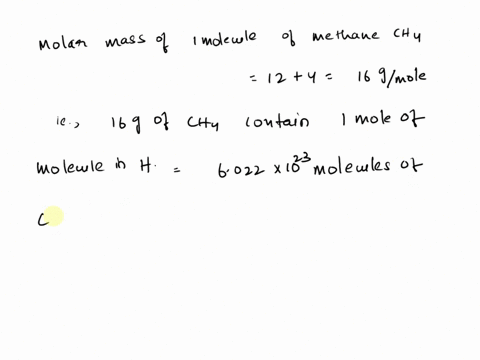 Molar mass of 1 molecule of methane CH4
= 12 + 4 = 16 g/mole
ie., 16 g of CH4 contain 1 mole of
molecule in H. = 6.022 × 10^23 molecules of
C